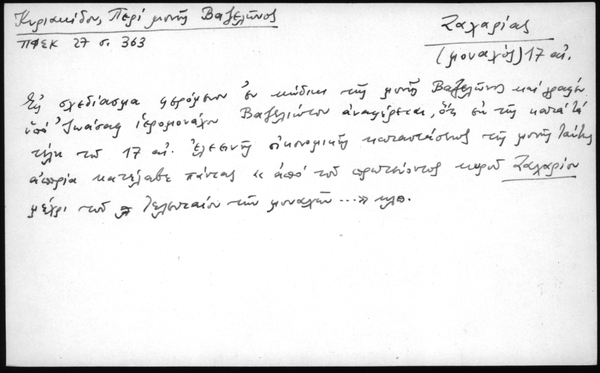 Κυριακίδου, Περί μονῆς Βαζελῶνος
ΠΦΣΚ 27 σ. 363
Ζαχαρίας
(μοναχός) 17 αἰ.
Εἰς σχεδίασμα φερόμενον ἐν κώδικι τῆς μονῆς Βαζελῶνος καί γραφέν
ὑπό Ἰωάσαφ ἱερομονάχου Βαζελιώτου ἀναφέρεται, ὅτι ἐκ τῆς κατά τά
τέλη τοῦ 17 αἰ. ἐλεεινῆς οἰκονομικῆς καταστάσεως τῆς μονῆς ταύτης
ἀπορία κατέλαβε πάντας «ἀπό τοῦ πρωτεύοντος κυροῦ Ζαχαρίου
μέχρι τοῦ τελευταίου τῶν μοναχῶν ...» κλπ.